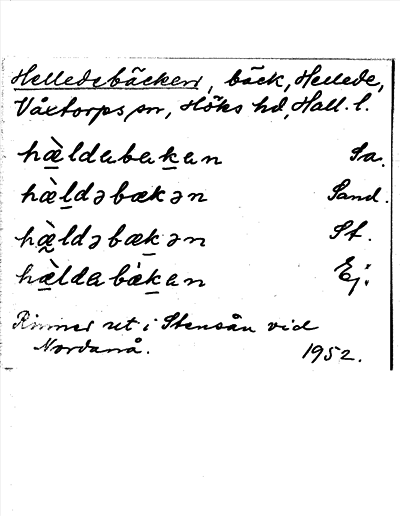 Helledebäcken, bäck, Hellede,
Våxtorps sn, Höks hd, Hall. l.
hæ̀ldabakan Sa.
hæ̀ldəbækən Sand.
hæ̀ldəbækən St.
hæ̀ldabákan Ej.
Rinner ut i Stensån vid
Nordanå. 1952.